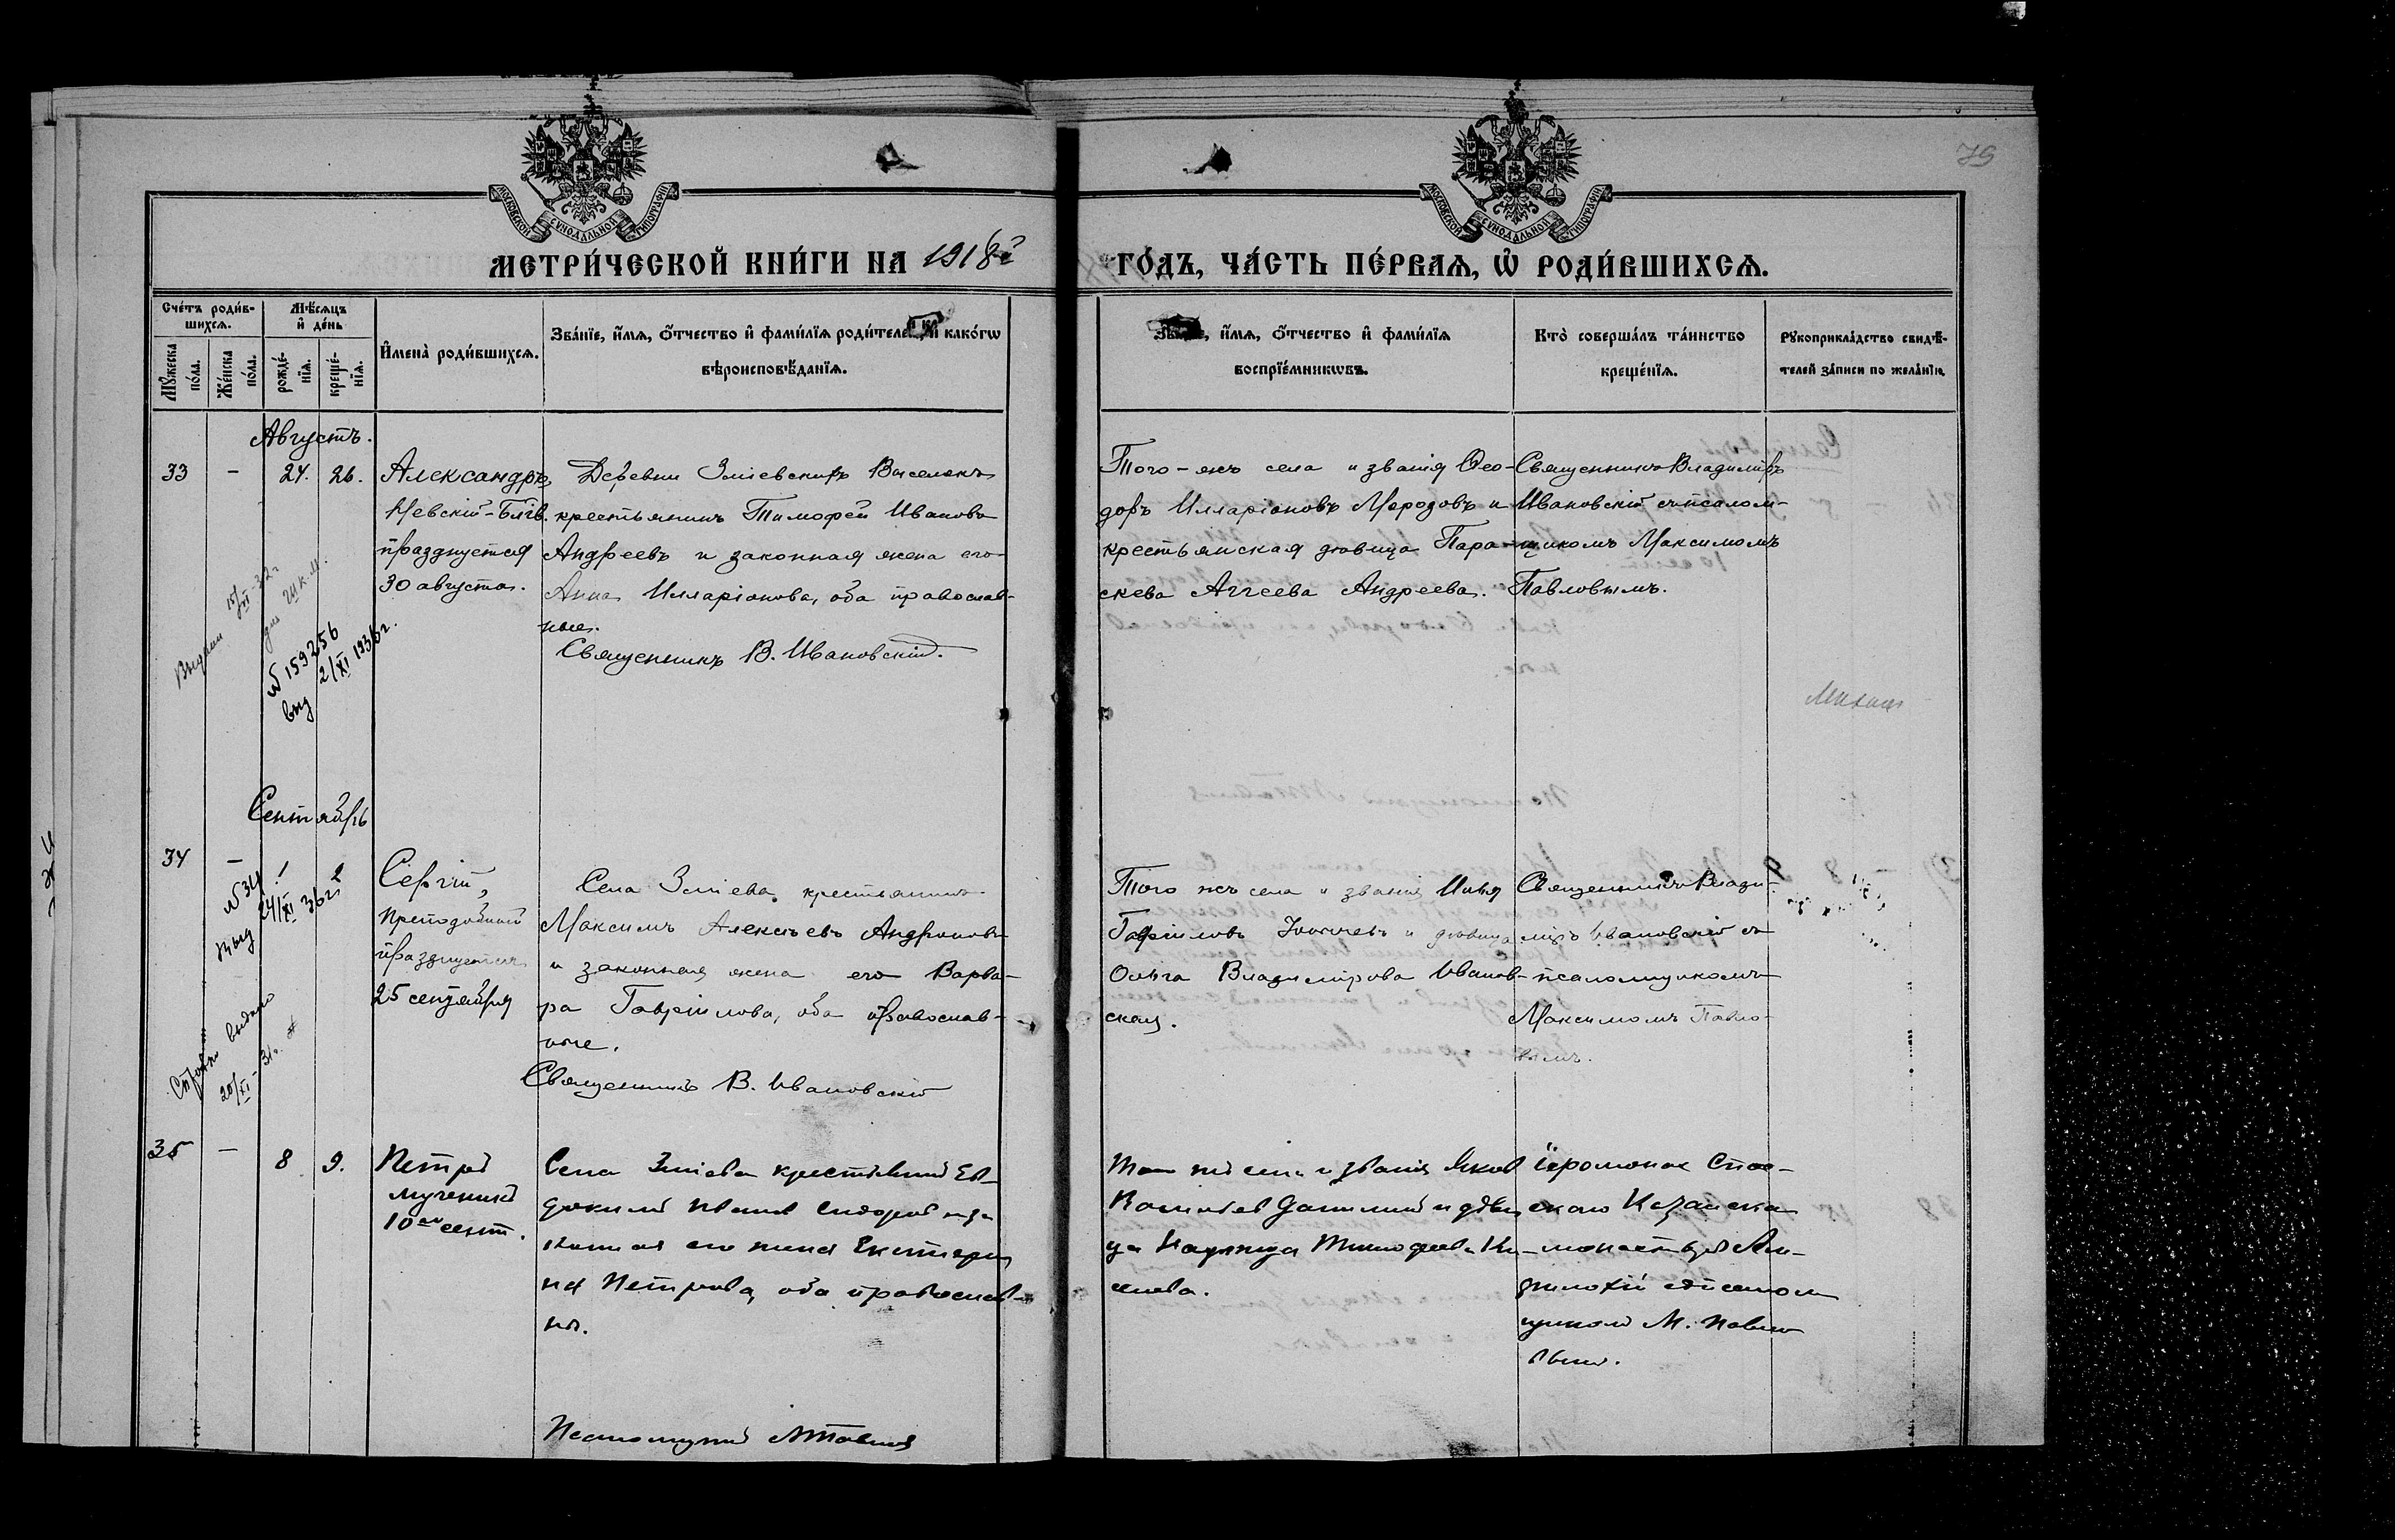 79
МОСКОВСКОЙ СѴНОДАЛЬНОЙ ТИПОГРАФІИ
МОСКОВСКОЙ СѴНОДАЛЬНОЙ ТИПОГРАФІИ
МЕТРИ́ЧЕСКОЙ КНИ́ГИ НА 1918й
ГО́ДЪ, ЧА́СТЬ ПЕ́РВАѦ, Ѡ҆ РОДИ́ВШИХСѦ.
Сче́тъ роди́в-
шихсѧ.
Мꙋ́жеска по́ла.
Же́нска по́ла.
Мѣ́сѧцъ
и҆ де́нь
рожде́-
нїѧ.
креще́-
нїѧ.
И҆мена̀ роди́вшихсѧ.
Зва́нїе, и҆́мѧ, ѻ҆́тчество и҆ фами́лїѧ роди́телей, и҆ како́гѡ
вѣроисповѣ́данїѧ.
Зва́нїе, и҆́мѧ, ѻ҆́тчество и҆ фами́лїѧ
воспрїе́мникѡвъ.
Кто̀ соверша́лъ та́инство
креще́нїѧ.
Рꙋкоприкла́дство свидѣ́-
телей за́писи по жела́нїю.
Августъ.
33 - 24. 26.
Александръ
Невскій-Блгв.
празднуется
30 августа.
Деревни Зміевскихъ Выселокъ
крестьянинъ Тимофей Ивановъ
Андреевъ и законная жена его
Анна Илларіонова, оба православ-
ные.
Священникъ В. Ивановскій.
Того-жъ села и званія Ѳео-
доръ Илларіоновъ Мородовъ и
крестьянская дѣвица Пара-
скева Аггеева Андреева.
Священникъ Владиміръ
Ивановскій съ псалом-
щикомъ Максимомъ
Павловымъ.
Выдан 15/XI-32г
№ 159256
выд 2/XI 1936г.
Сентябрь
34 - 1
Сергій,
преподобный
празднуется
25 сентября
Села Зміева крестьянинъ
Максимъ Алексѣевъ Андроновъ
и законная жена его Варва-
ра Гавріилова, оба православ-
ные.
Священникъ В. Ивановскій
Того жъ села и званія Илья
Гавріиловъ и дѣвица
Ольга Владимірова Иванов-
ская.
Священникъ Влади-
міръ Ивановскій съ
псаломщикомъ
Максимомъ Павло-
вымъ.
Выд №34 24/XI 36г
выдано
20/XI-31г.
35 - 8 9.
Петръ
мученикъ
10го сент.
Села Зміева крестьянинъ Ев-
докимъ Ивановъ Сидоровъ и за
конная его жена Екатери
на Петрова, оба православ-
ны.
Псаломщикъ М Павловъ
Того жъ села и званія Яковъ
Васильевъ и дѣви
ца Надежда Тимофеева
Іеромонах Спас-
скаго Казанска
монастыря Ам-
филохій съ псалом
щиком М. Павло
вым.